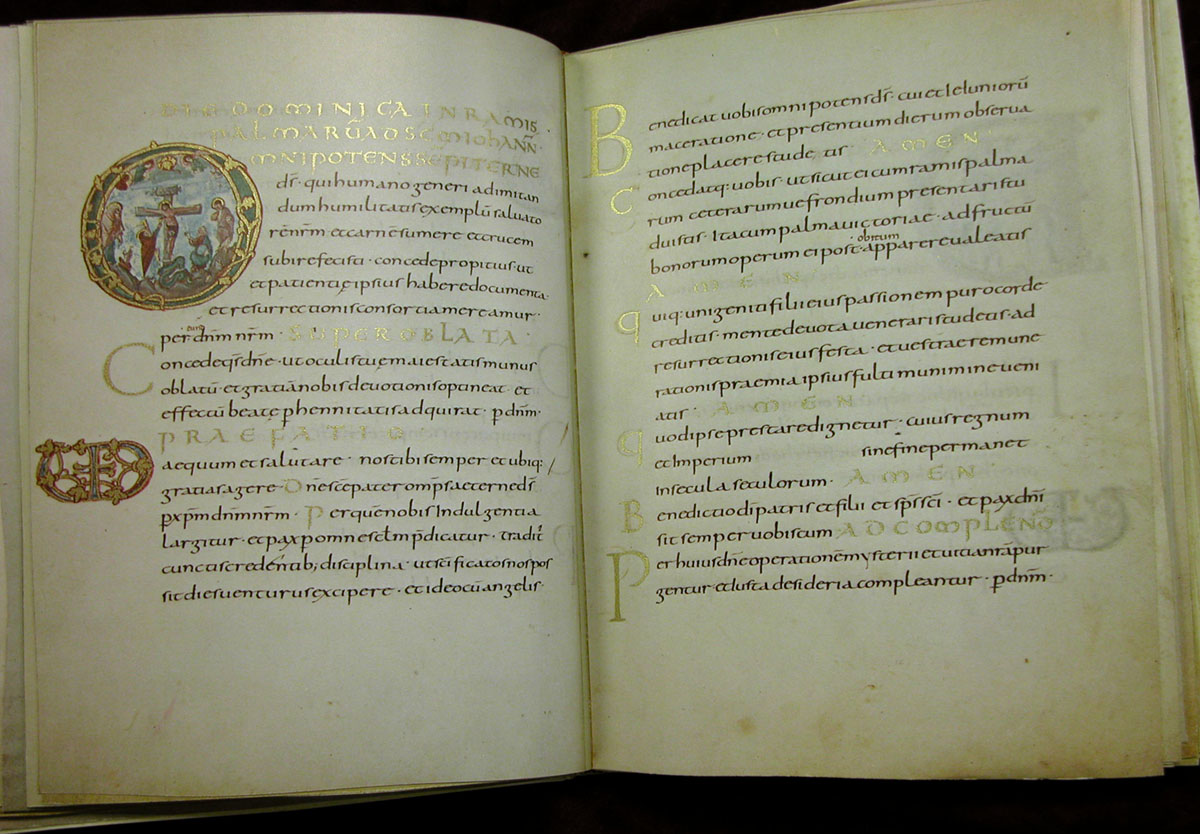 DIE DOMINICA IN RAMIS
PALMARŪ AD SC̄M IOHANN̄
OMNIPOTENS SEPITERNE
ds̄· qui humano generi adimitan
dum humilitatis exemplū saluato
rēnr̄m et carnē sumere et crucem
subire fecisti· concede propitius· ut
et patientię ipsius habere documenta·
et resurrectionis consortia mereamur·
per dn̄m nr̄m· SUPER OBLATA·
Concede qs̄ dn̄e· ut oculis tuę maiestatis munus
oblatū· et gratiā nobis deuotionis optineat· et
effectū beatę phennitatis adquirat· p dn̄m·
PRAEFATIO
aequum et salutare· nos tibi semper et ubiq;
gratias agere· Dn̄e sc̄e pater omp̄s aeterne ds̄·
p xp̄m dn̄m nr̄m· Per quē nobis Indulgentia
largitur· et pax p omne sc̄lm p̄dicatur· tradit̄
cunctis credentib; disciplina· ut sc̄ificatos nos pos
sit dies uenturus excipere· et ideo cū angelis·
Benedicat uobis omnipotens ds̄· cui et Ieiuniorū
maceratione· et presentium dierum obserua
tione placere studetis· AMEN·
Concedatq; uobis· ut sicut ei cum ramis palma
rum ceterarumue frondium presentari stu
duistis· Ita cum palma uictoriae· ad fructū
obitum
bonorum operum ei post apparere ualeatis
AMEN
quiq; unigeniti filii eius passionem puro corde
creditis· mente deuota uenerari studetis· ad
resurrectionis eius festa· et uestrae remune
rationis praemia ipsius fulti munimine ueni
atis· AMEN
quod ipse prestare dignetur· cuius regnum
et Imperium sine fine permanet
In secula seculorum· AMEN
Benedictio dī patris et filii et sp̄s sc̄i· et pax dn̄i
sit semper uobiscum AD COMPLEND̄
Per huius dn̄e operationē mysterii et uitia nr̄a pur
gentur· et Iusta desideria compleantur· p dn̄m·